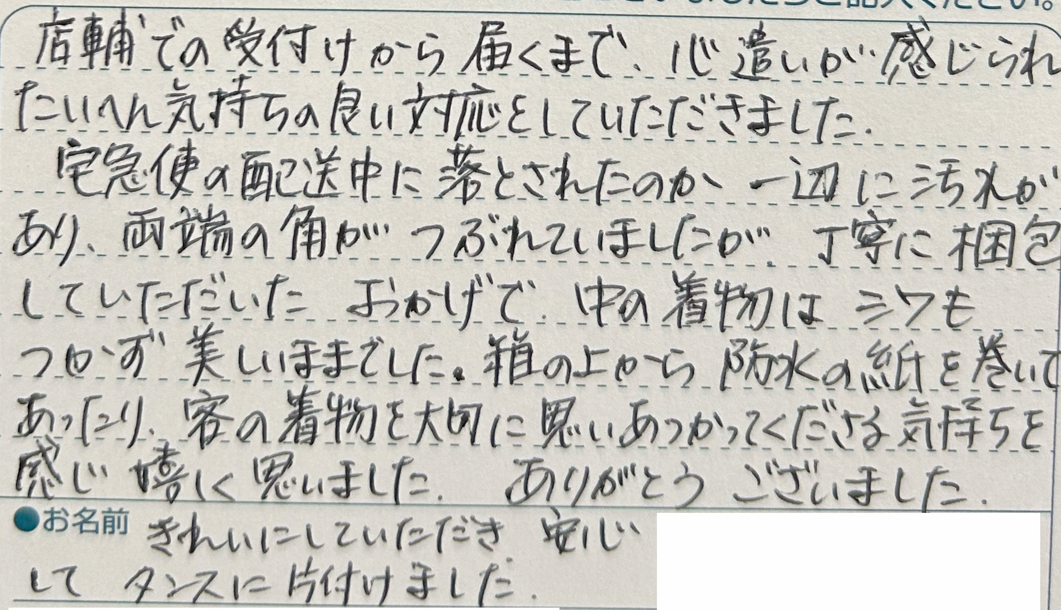 ご記入ください。
店輔での受付けから届くまで、心遣いが感じられ
たいへん気持ちの良い対応をしていただきました.
宅急便の配送中に落とされたのか、一辺に汚れが
あり、両端の角がつぶれていましたが、丁寧に梱包
していただいた おかげで、中の着物はシワも
つかず美しいままでした。箱の上から防水の紙を巻いて
あったり、客の着物を大切に思いあつかってくださる気持ちを
感じ嬉しく思いました. ありがとうございました.
●お名前 きれいにしていただき、安心
して タンスに片付けました.